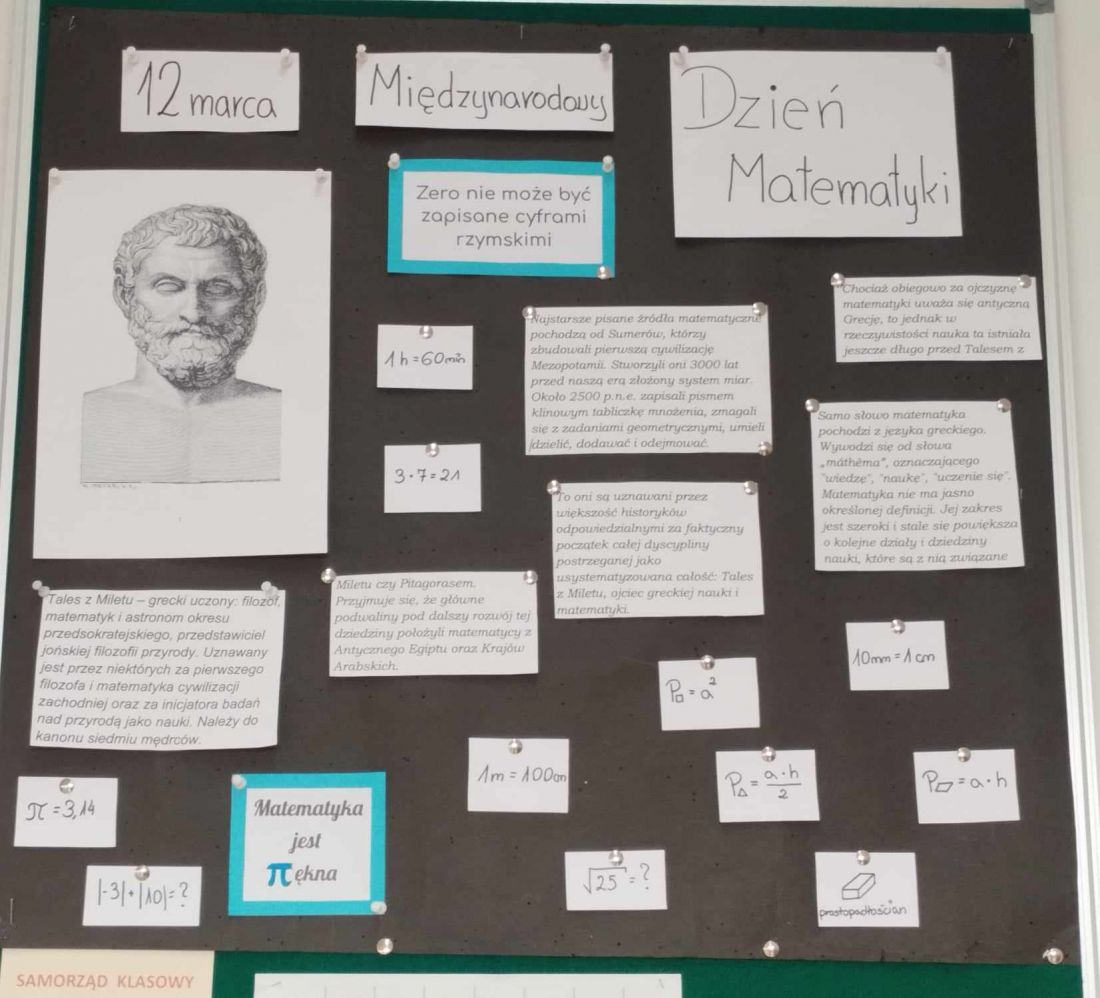 12 marca
Międzynarodowy
Dzień
Matematyki
Zero nie może być
zapisane cyframi
rzymskimi
Chociaż obiegowo za ojczyznę
matematyki uważa się antyczną
Grecję, to jednak w
rzeczywistości nauka ta istniała
jeszcze długo przed Talesem z
1h = 60min
Najstarsze pisane źródła matematyczne
pochodzą od Sumerów, którzy
zbudowali pierwszą cywilizację
Mezopotamii. Stworzyli oni 3000 lat
przed naszą erą złożony system miar.
Około 2500 p.n.e. zapisali pismem
klinowym tabliczkę mnożenia, zmagali
się z zadaniami geometrycznymi, umieli
dzielić, dodawać i odejmować.
Samo słowo matematyka
pochodzi z języka greckiego.
Wywodzi się od słowa
„máthēma", oznaczającego
"wiedzę", "naukę", "uczenie się".
Matematyka nie ma jasno
określonej definicji. Jej zakres
jest szeroki i stale się powiększa
o kolejne działy i dziedziny
nauki, które są z nią związane
3·7=21
To oni są uznawani przez
większość historyków
odpowiedzialnymi za faktyczny
początek całej dyscypliny
postrzeganej jako
usystematyzowana całość: Tales
z Miletu, ojciec greckiej nauki i
matematyki.
Miletu czy Pitagorasem.
Przyjmuje się, że główne
podwaliny pod dalszy rozwój tej
dziedziny położyli matematycy z
Antycznego Egiptu oraz Krajów
Arabskich.
Tales z Miletu – grecki uczony: filozof,
matematyk i astronom okresu
przedsokratejskiego, przedstawiciel
jońskiej filozofii przyrody. Uznawany
jest przez niektórych za pierwszego
filozofa i matematyka cywilizacji
zachodniej oraz za inicjatora badań
nad przyrodą jako nauki. Należy do
kanonu siedmiu mędrców.
10mm = 1cm
P□ = a²
1m = 100cm
P△ = a·h/2
P▱ = a·h
π = 3,14
Matematyka
jest
πękna
|-3|+|10|=?
√25 = ?
prostopadłościan
SAMORZĄD KLASOWY